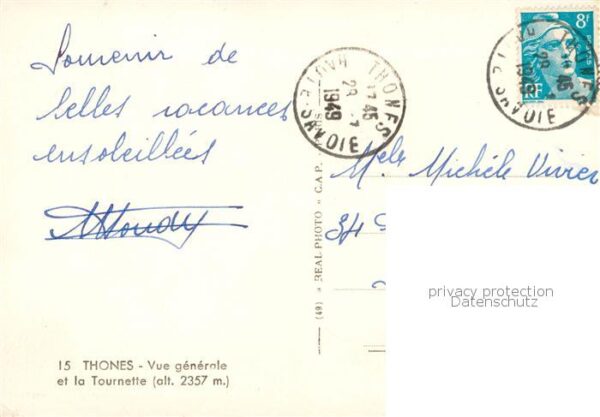 Souvenir de
belles vacances
ensoleillées
15 THONES - Vue générale
et la Tournette (alt. 2357 m.)
(49) « REAL-PHOTO » C.A.P.
THONES
17 45
29 - 7
1949
HAUTE-SAVOIE
8F
RF
THONES
45
29
1949
SAVOIE
Melle Michèle Vivier
34
privacy protection
Datenschutz